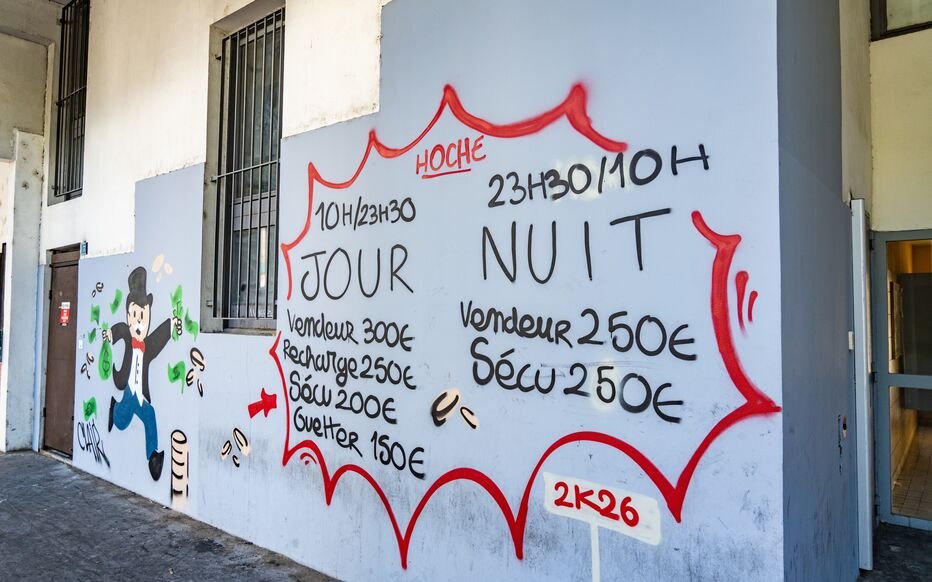 HOCHE
10H/23H30
JOUR
Vendeur 300€
Recharge 250€
Sécu 200€
Guetter 150€
23H30/10H
NUIT
Vendeur 250€
Sécu 250€
2K26